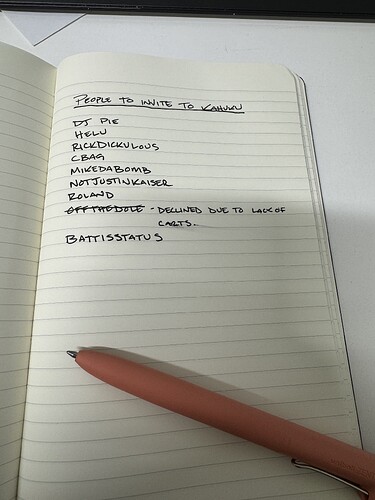 PEOPLE TO INVITE TO KAHUKU
DJ PIE
HELU
RICKDICKULOUS
CBAG
MIKEDABOMB
NOTJUSTINKAISER
ROLAND
OFFTHEDOLE - DECLINED DUE TO LACK OF
CARTS.
BATTISSTATUS